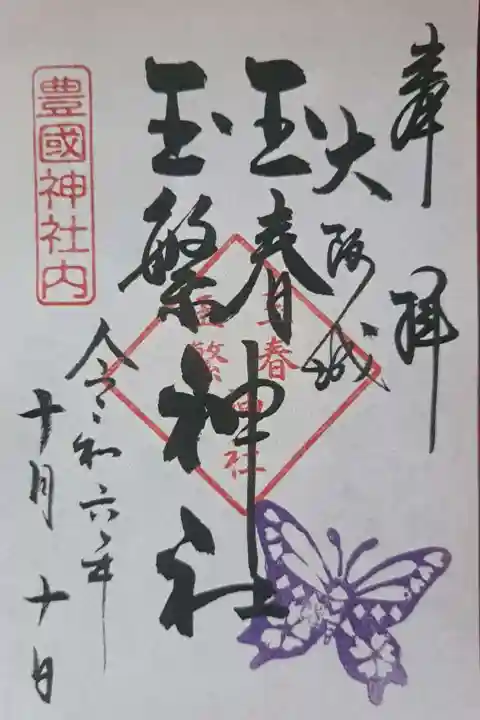 奉拝
大阪城
玉春神社
玉繁神社
玉春
玉繁
神社
豊國神社内
令和六年
十月十日